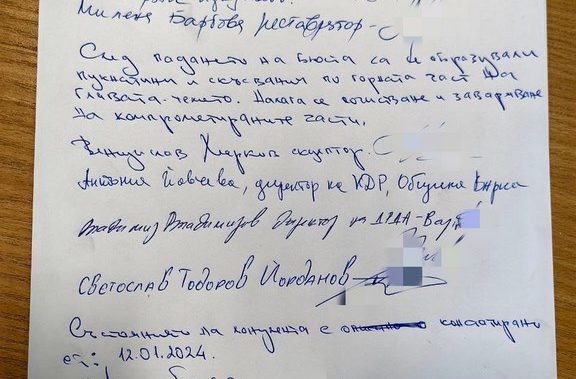 Милена Барбова реставратор -
След падането на бюста са се образували
пукнатини и скъсвания по горната част на
главата - челото. Налага се почистване и заваряване
на компрометираните части.
Венцислав Марков скулптор.
Антония Йовчева, директор на КДР, Община Варна
Владимир Владимиров Директор на ДРДА - Варна
Светослав Тодоров Йорданов
Състоянието на монумента е констатирано
12.01.2024.